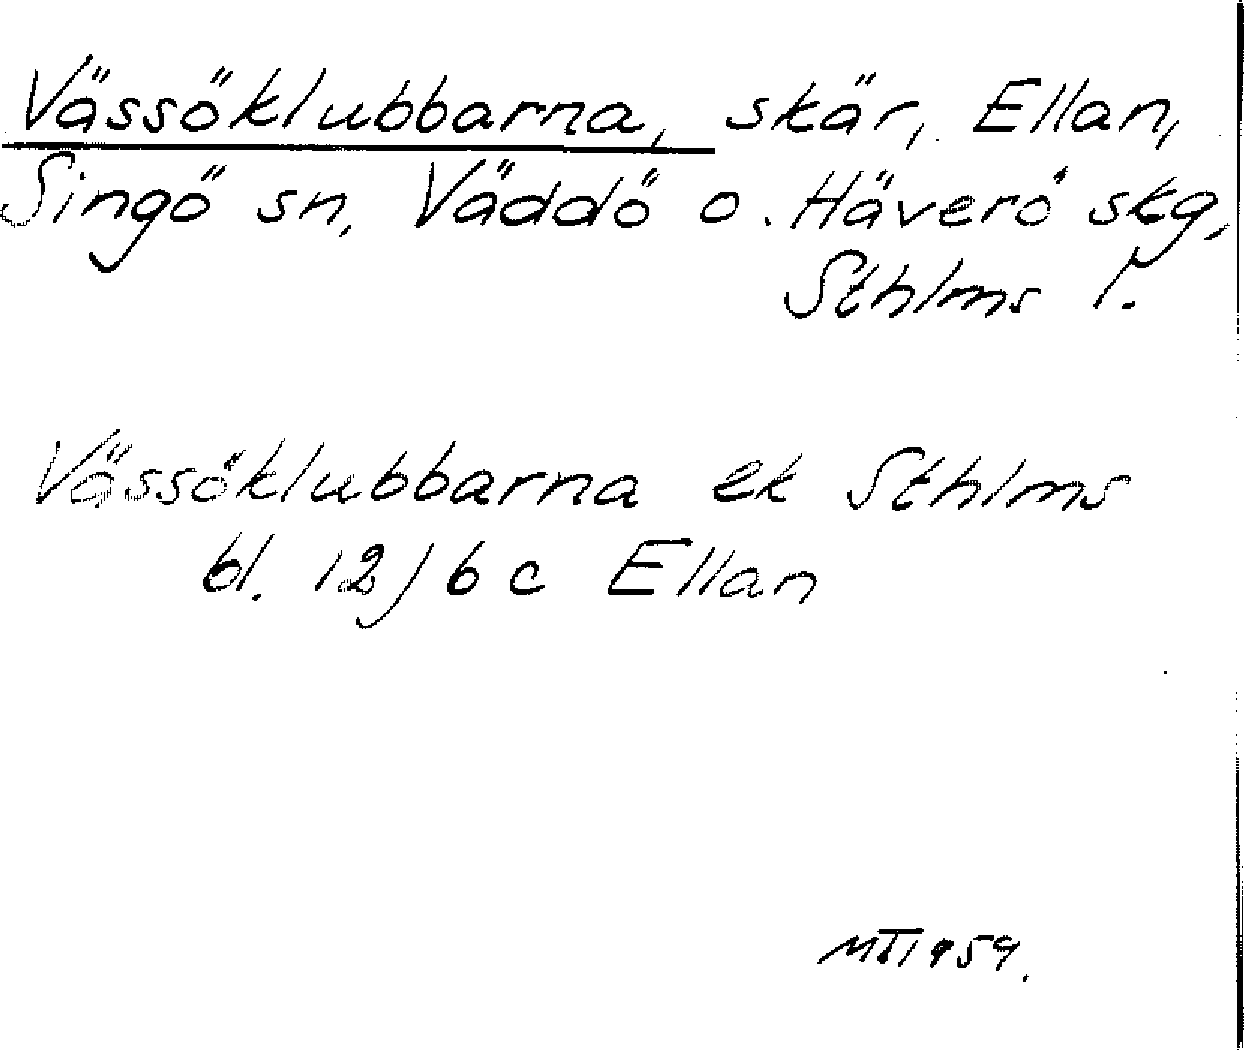 Vässöklubbarna, skär, Ellan,
Singö sn, Väddö o. Häverö skg,
Sthlms l.
Vässöklubbarna ek Sthlms
bl. 12/6 c Ellan
1959.